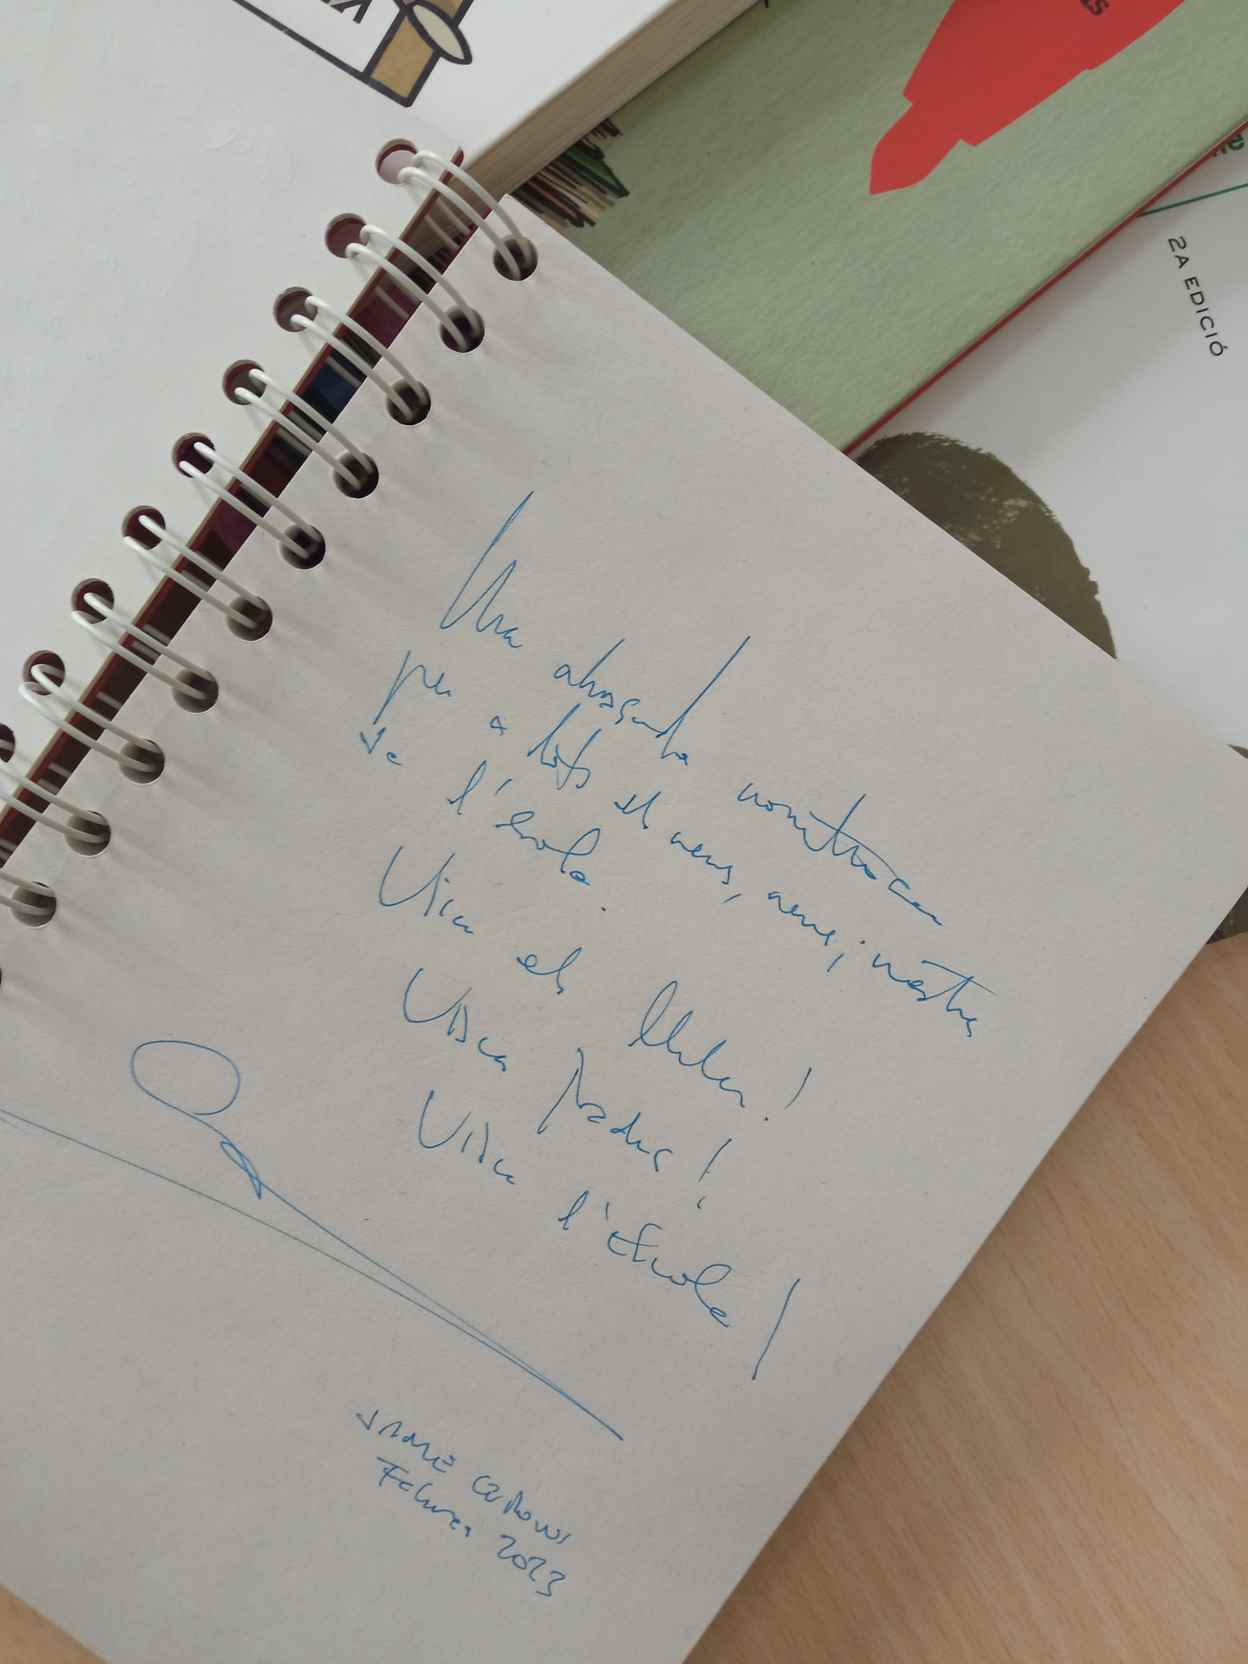 2A EDICIÓ
Una abraçada
per a tots els nens, nenes i mestres
de l'escola.
Visca els llibres!
Visca
Visca l'Escola!
JAUME
Febrer 2023